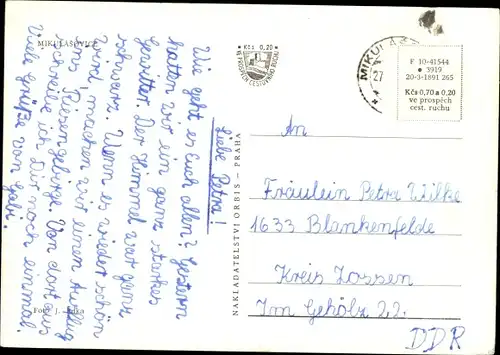 MIKULÁŠOVICE
Liebe Petra!
Wie geht es Euch allen? Gestern
hatten wir ein ganz starkes
Gewitter. Der Himmel war ganz
schwarz. Wenn es wieder schön
wird machen wir einen Ausflug
ins Riesengebirge. Von dort aus
schreibe ich Dir noch einmal.
Viele Grüße von Gabi.
Foto J.
NAKLADATELSTVÍ ORBIS – PRAHA
Kčs 0,20
VE PROSPĚCH CESTOVNÍHO RUCHU
MIKUL
27
F 10-41544
• 3919
20-3-1891 265
Kčs 0,70 a 0,20
ve prospěch
cest. ruchu
An
Fräulein Petra Wilke
1633 Blankenfelde
Kreis Zossen
Im Gehölz 22.
DDR